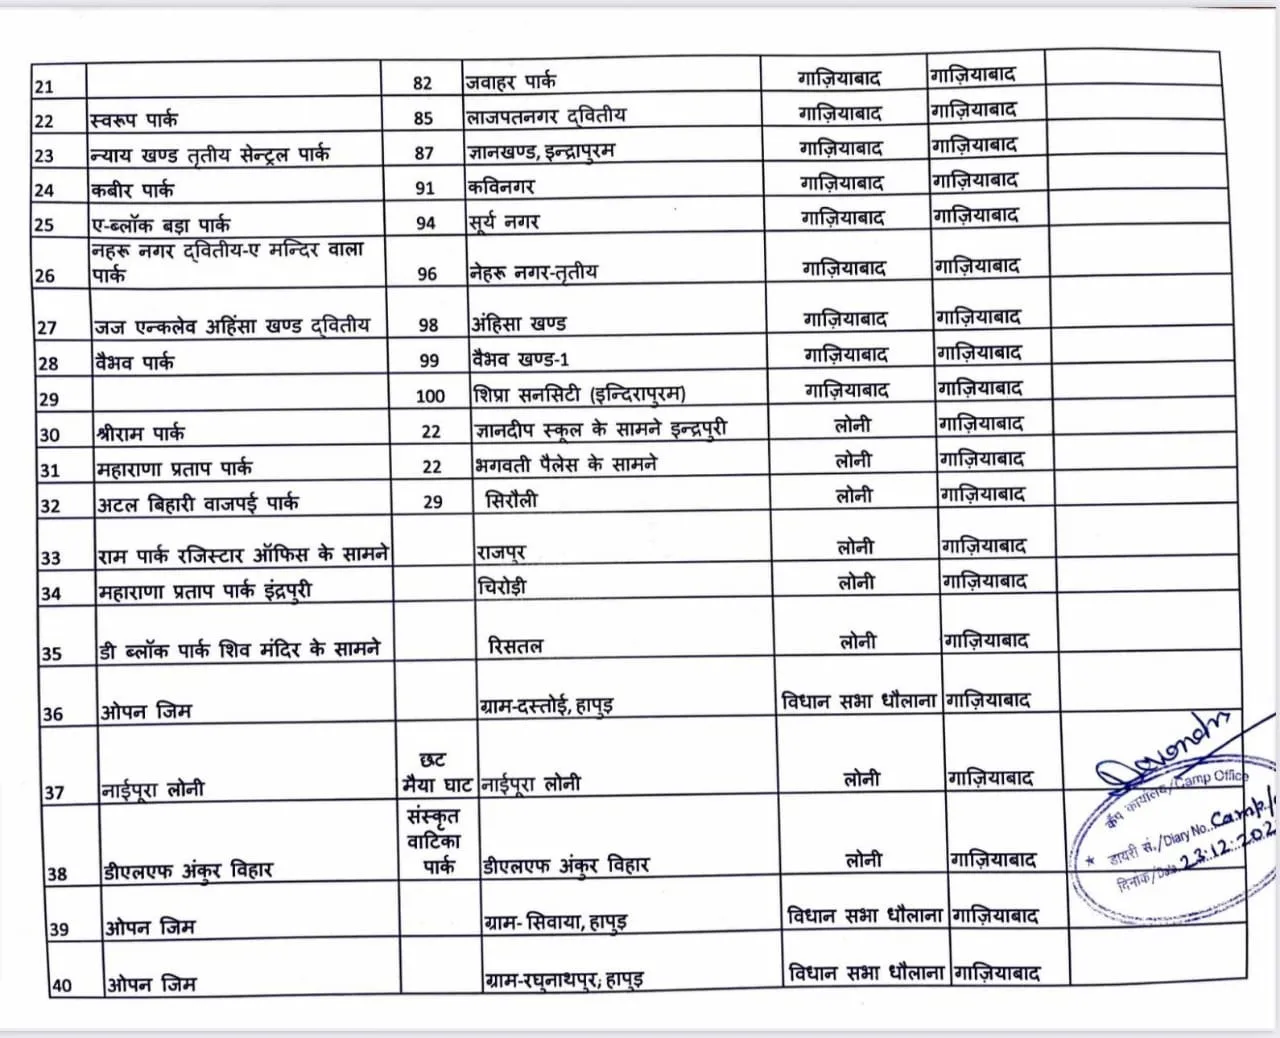 21 82 जवाहर पार्क गाज़ियाबाद गाज़ियाबाद
22 स्वरूप पार्क 85 लाजपतनगर द्वितीय गाज़ियाबाद गाज़ियाबाद
23 न्याय खण्ड तृतीय सेन्ट्रल पार्क 87 ज्ञानखण्ड, इन्द्रापुरम गाज़ियाबाद गाज़ियाबाद
24 कबीर पार्क 91 कविनगर गाज़ियाबाद गाज़ियाबाद
25 ए-ब्लॉक बड़ा पार्क 94 सूर्य नगर गाज़ियाबाद गाज़ियाबाद
नहरू नगर द्वितीय-ए मन्दिर वाला
26 पार्क 96 नेहरू नगर-तृतीय गाज़ियाबाद गाज़ियाबाद
27 जज एन्कलेव अहिंसा खण्ड द्वितीय 98 अंहिसा खण्ड गाज़ियाबाद गाज़ियाबाद
28 वैभव पार्क 99 वैभव खण्ड-1 गाज़ियाबाद गाज़ियाबाद
29 100 शिप्रा सनसिटी (इन्दिरापुरम) गाज़ियाबाद गाज़ियाबाद
30 श्रीराम पार्क 22 ज्ञानदीप स्कूल के सामने इन्द्रपुरी लोनी गाज़ियाबाद
31 महाराणा प्रताप पार्क 22 भगवती पैलेस के सामने लोनी गाज़ियाबाद
32 अटल बिहारी वाजपई पार्क 29 सिरौली लोनी गाज़ियाबाद
33 राम पार्क रजिस्टार ऑफिस के सामने राजपुर लोनी गाज़ियाबाद
34 महाराणा प्रताप पार्क इंद्रपुरी चिरोड़ी लोनी गाज़ियाबाद
35 डी ब्लॉक पार्क शिव मंदिर के सामने रिसतल लोनी गाज़ियाबाद
36 ओपन जिम ग्राम-दस्तोई, हापुड़ विधान सभा धौलाना गाज़ियाबाद
छट
37 नाईपूरा लोनी मैया घाट नाईपूरा लोनी लोनी गाज़ियाबाद
संस्कृत
वाटिका
38 डीएलएफ अंकुर विहार पार्क डीएलएफ अंकुर विहार लोनी गाज़ियाबाद
39 ओपन जिम ग्राम- सिवाया, हापुड़ विधान सभा धौलाना गाज़ियाबाद
40 ओपन जिम ग्राम-रघुनाथपुर, हापुड़ विधान सभा धौलाना गाज़ियाबाद
कैंप कार्यालय/Camp Office
डायरी सं./Diary No. Camp/
दिनांक/Date 23.12.202